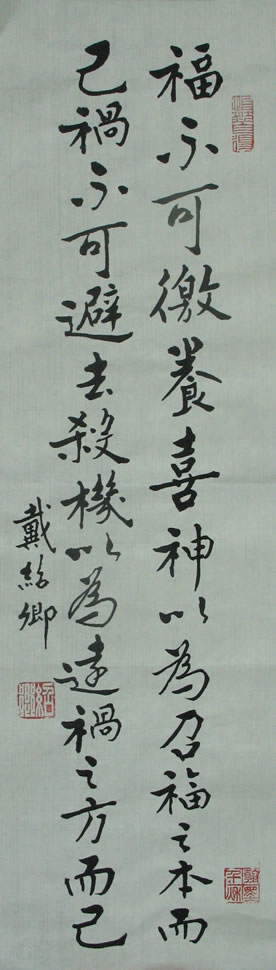 福不可徼養喜神以為召福之本而
已禍不可避去殺機以為遠禍之方而已
戴紹卿